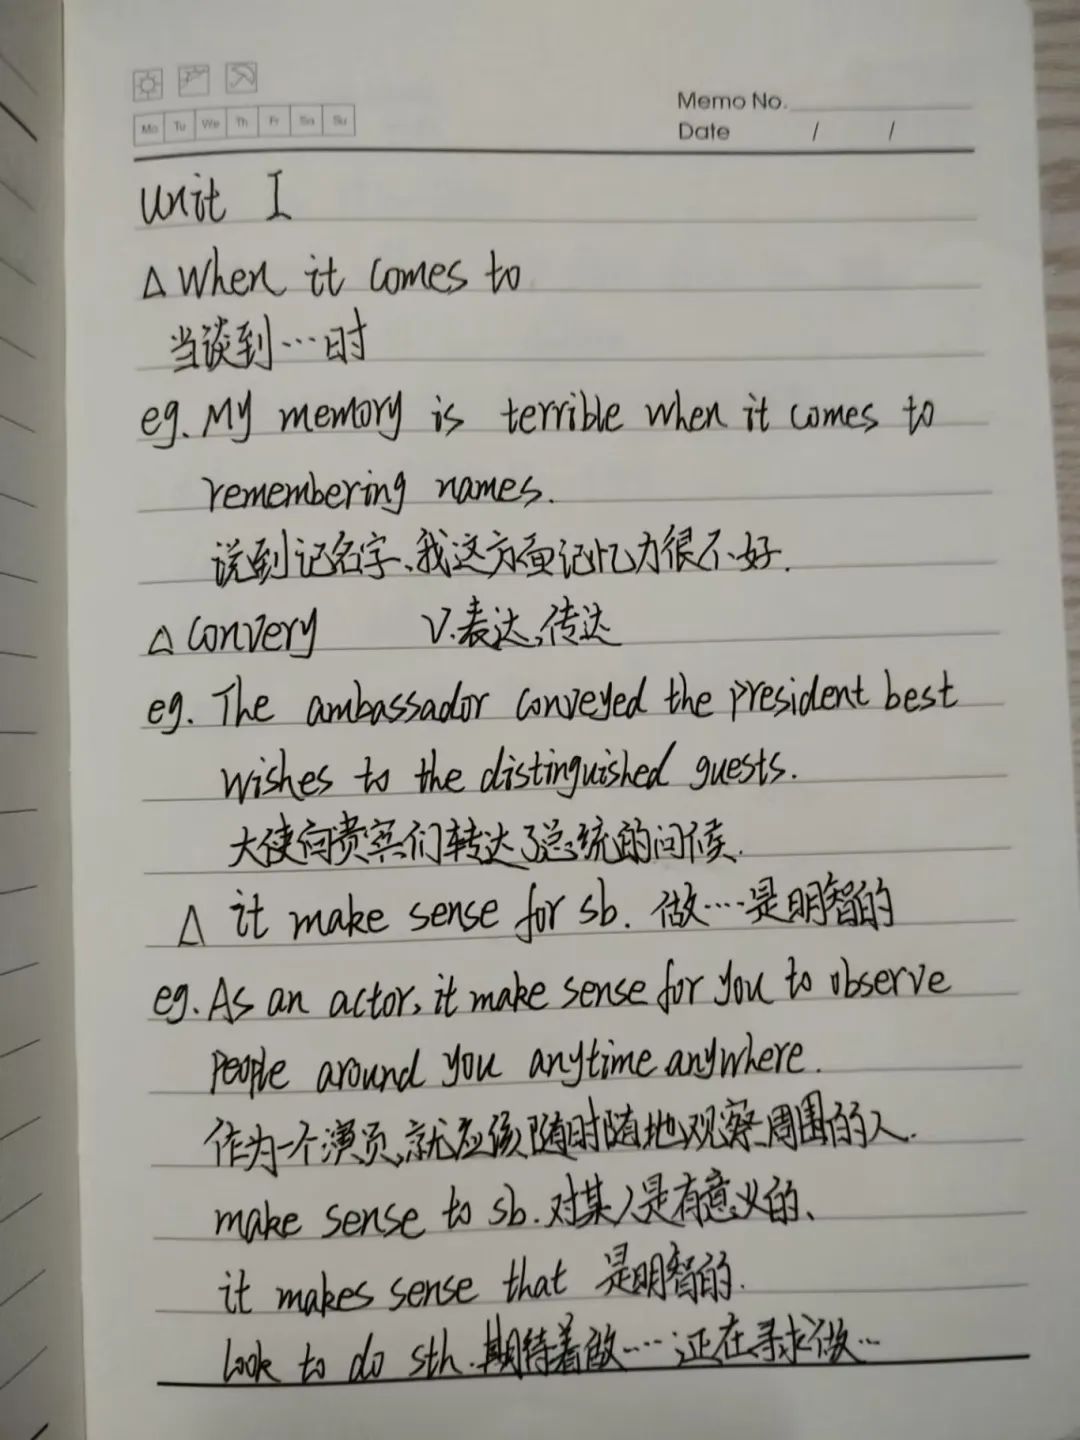 Memo No.
Mo Tu We Th Fr Sa Su
Date / /
Unit I
△ When it comes to
当谈到…时
eg. My memory is terrible when it comes to
remembering names.
说到记名字、我这方面记忆力很不好.
△ Convery V.表达,传达
eg. The ambassador conveyed the president best
wishes to the distinguished guests.
大使向贵宾们转达了总统的问候.
△ it make sense for sb. 做…是明智的
eg. As an actor, it make sense for you to observe
People around you anytime anywhere.
作为一个演员,就应该随时随地观察周围的人.
make sense to sb. 对某人是有意义的、
it makes sense that 是明智的.
look to do sth. 期待着做…正在寻求做…